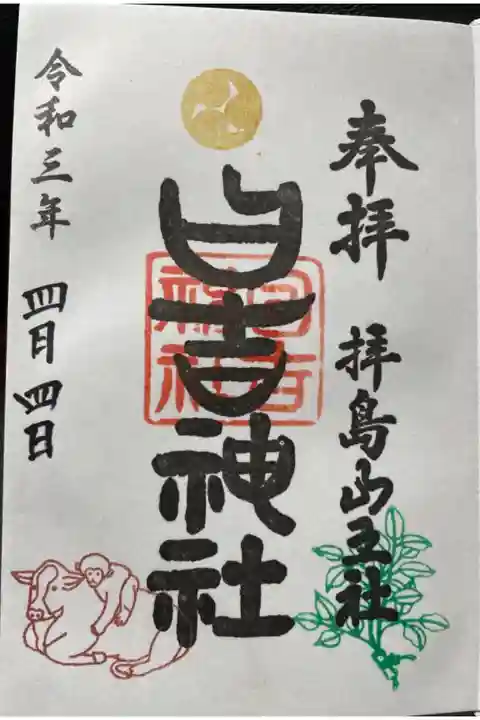 奉拝 拝島山王社
日吉神社
日吉神社
令和三年 四月四日